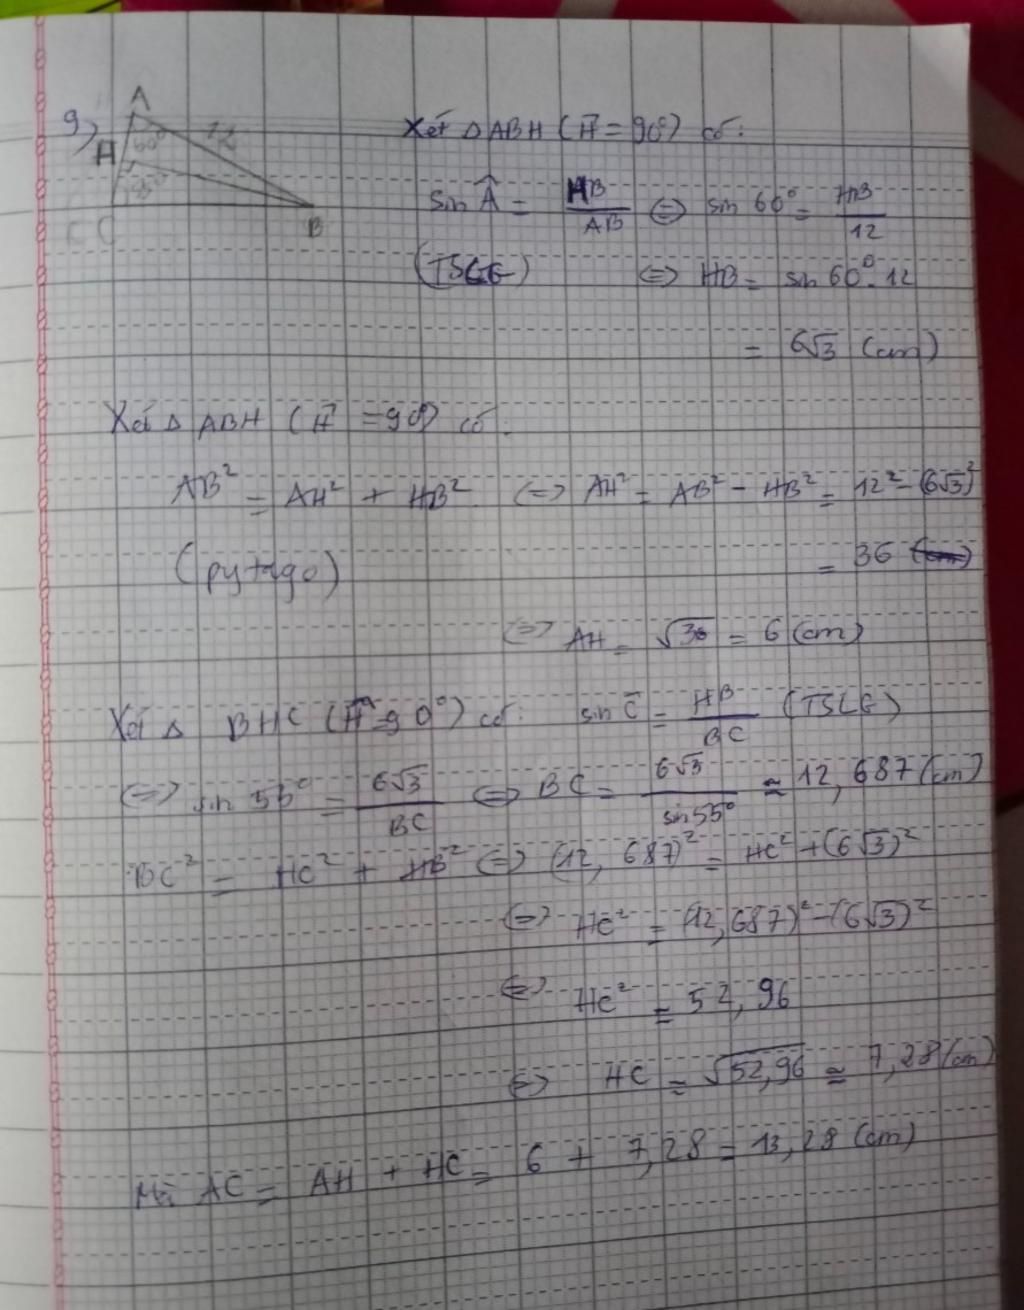 9)
A
60°
12
H
C
B
Xét △ ABH (Ĥ = 90°) có:
sin Â = HB/AB ⇔ sin 60° = HB/12
(TSLG) ⇔ HB = sin 60°. 12
= 6√3 (cm)
Xét △ ABH (Ĥ = 90°) có:
AB² = AH² + HB² ⇔ AH² = AB² - HB² = 12² - (6√3)²
(pytago) = 36
⇔ AH = √36 = 6 (cm)
Xét △ BHC (Ĥ = 90°) có: sin Ĉ = HB/BC (TSLG)
⇔ sin 55° = 6√3/BC ⇔ BC = 6√3/sin 55° ≈ 12,687 (cm)
BC² = HC² + HB² ⇔ (12,687)² = HC² + (6√3)²
⇔ HC² = (12,687)² - (6√3)²
⇔ HC² = 52,96
⇔ HC = √52,96 ≈ 7,28 (cm)
Mà AC = AH + HC = 6 + 7,28 = 13,28 (cm)